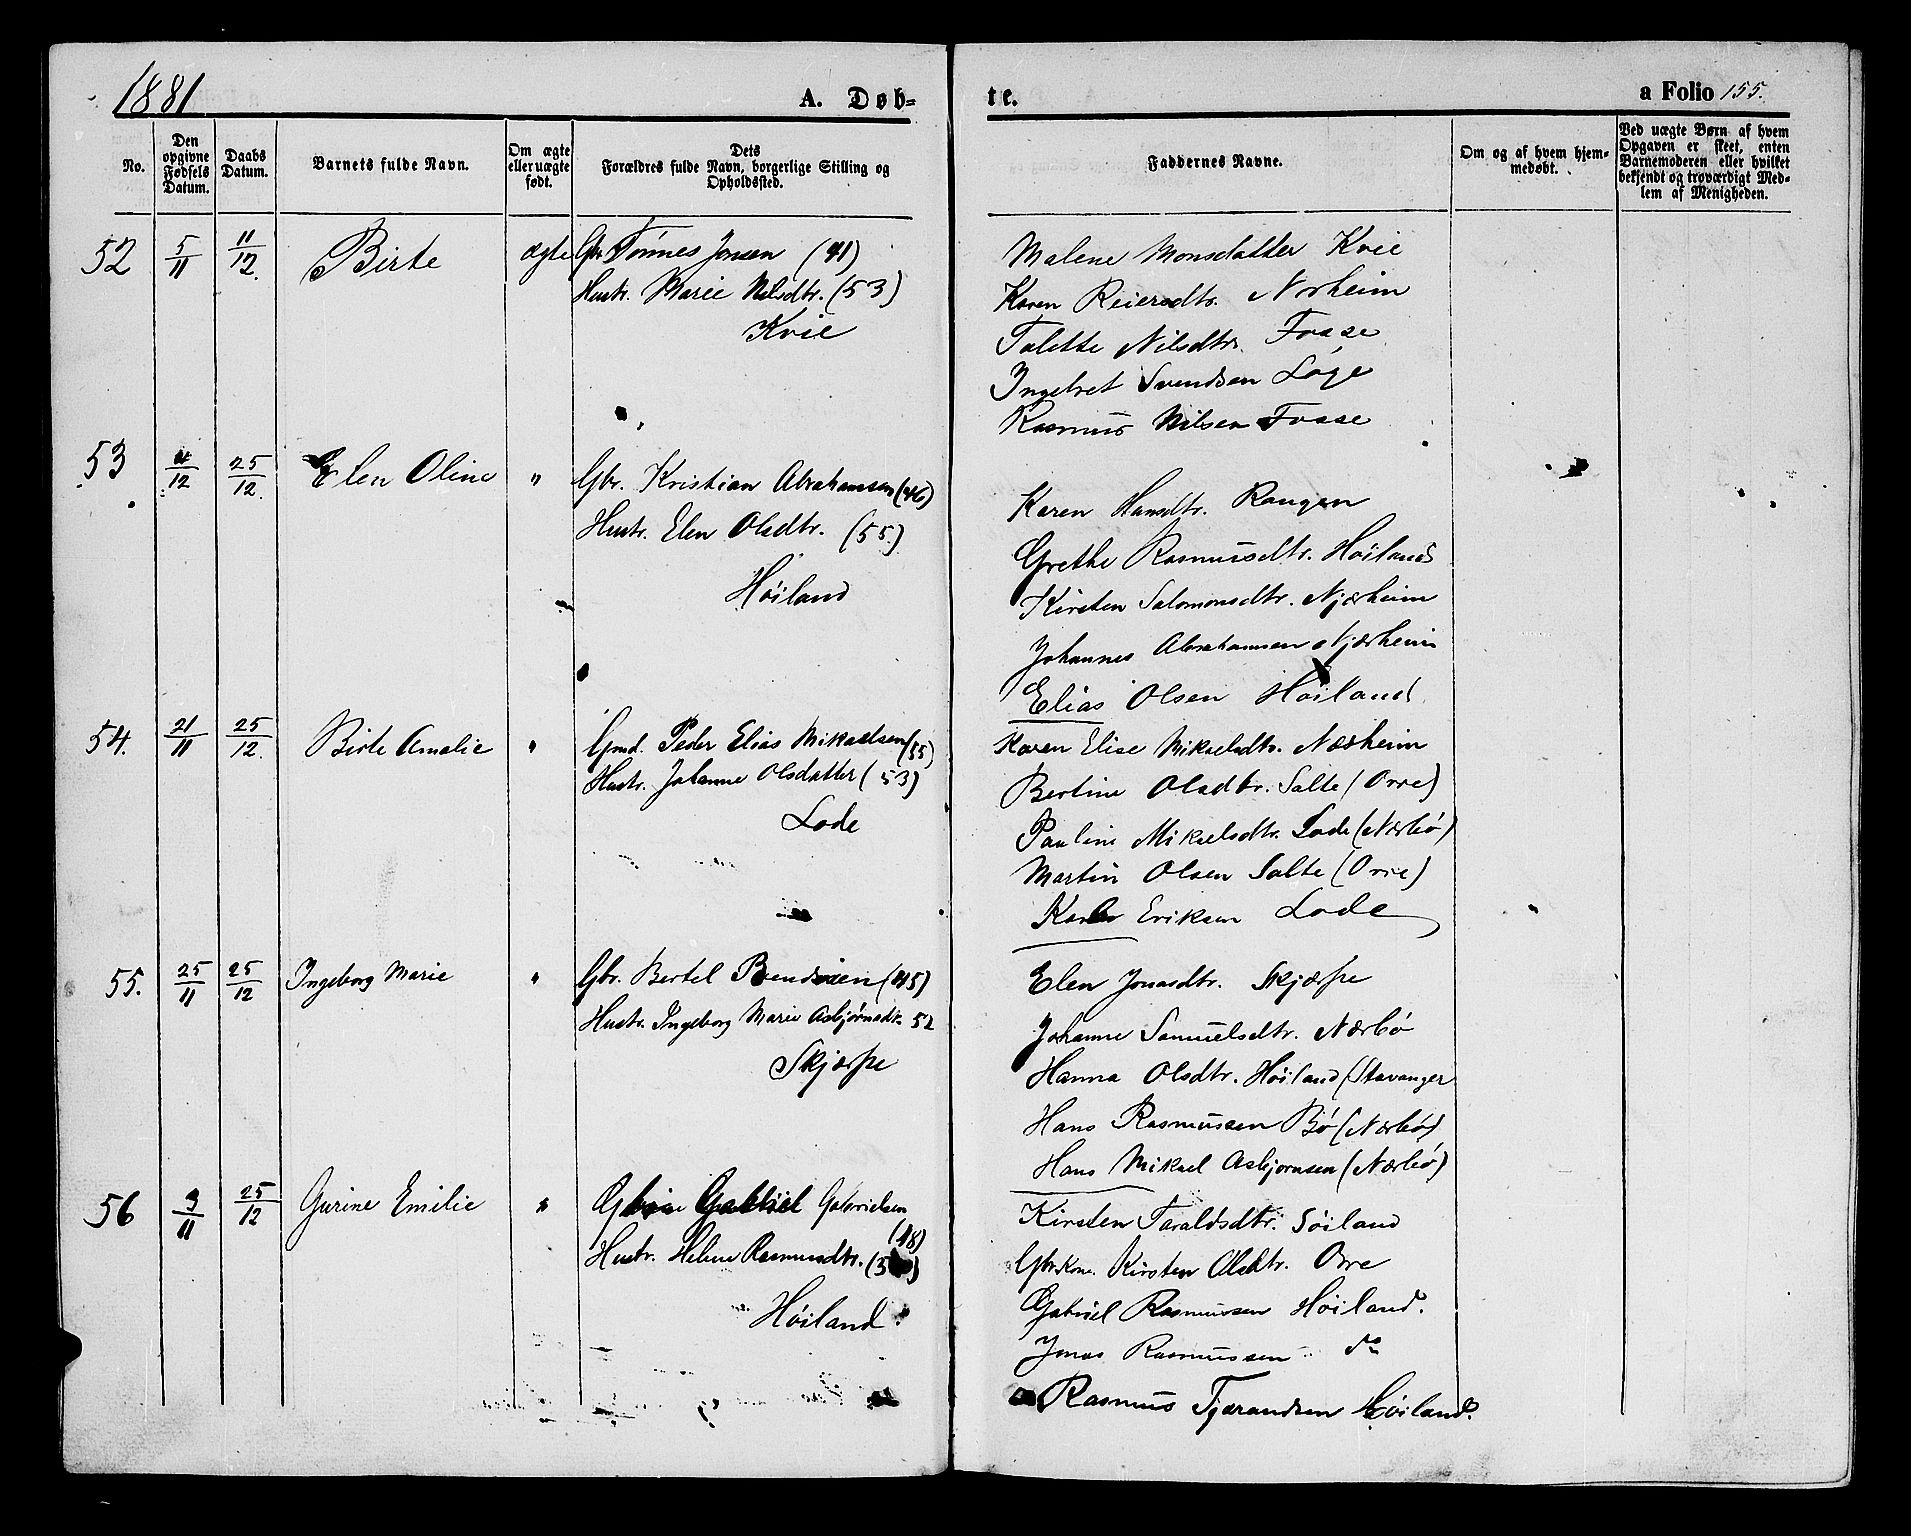 1881
A. Døb-
te.
a Folio 155.
No.
Den opgivne Fødsels Datum.
Daabs Datum.
Barnets fulde Navn.
Om ægte eller uægte født.
Dets Forældres fulde Navn, borgerlige Stilling og Opholdssted.
Faddernes Navne.
Om og af hvem hjemmedøbt.
Ved uægte Børn af hvem Opgaven er skeet, enten Barnemoderen eller hvilket bekjendt og troværdigt Medlem af Menigheden.
52 5/11 11/12. Birte ægte Gbr. Tønnes Jonsen (41)
Hustr. Marie Nilsdtr. (53)
Kvie
Malene Monsdatter Kvie
Karen Reiersdtr. Norheim
Talette Nilsdtr. Fosse
Ingebret Svendsen Løge
Rasmus Nilsen Fosse
53 4/12 25/12. Elen Oline " Gbr. Kristian Abrahamsen (46)
Hustr. Elen Olsdtr. (55.)
Høiland
Karen Hansdtr. Raugen
Grethe Rasmusdtr. Høiland
Kirsten Salomonsdtr. Njærheim
Johannes Abrahamsen Njærheim
Elias Olsen Høiland
54. 21/11 25/12. Birte Amalie " Gmd. Peder Elias Mikaelsen (55)
Hustr. Johanne Olsdatter (53)
Lode
Karen Elise Mikaelsdtr. Nærheim
Bertine Olsdtr. Salte (Orre)
Pauline Mikaelsdtr. Lode (Nærbø)
Martin Olsen Salte (Orre)
Eriksen Lode
55. 25/11 25/12 Ingeborg Marie " Gbr. Bertel Bendixen (45)
Hustr. Ingeborg Marie Asbjørnsdtr. 52
Skjærpe
Elen Jonasdtr. Skjærpe
Johanne Samuelsdtr. Nærbø
Hanna Olsdtr. Høiland (Stavanger
Hans Rasmussen Bø (Nærbø)
Hans Mikael Asbjørnsen (Nærbø)
56 9/11 25/12 Gurine Emilie " Gabriel Gabrielsen
(48)
Hustr. Helene Rasmusdtr.
Høiland.
Kirsten Taraldsdtr. Søiland
Gbrkone. Kirsten Olsdtr. Orre
Gabriel Rasmussen Høiland.
Jonas Rasmussen do
Rasmus Tjærandsen Høiland.